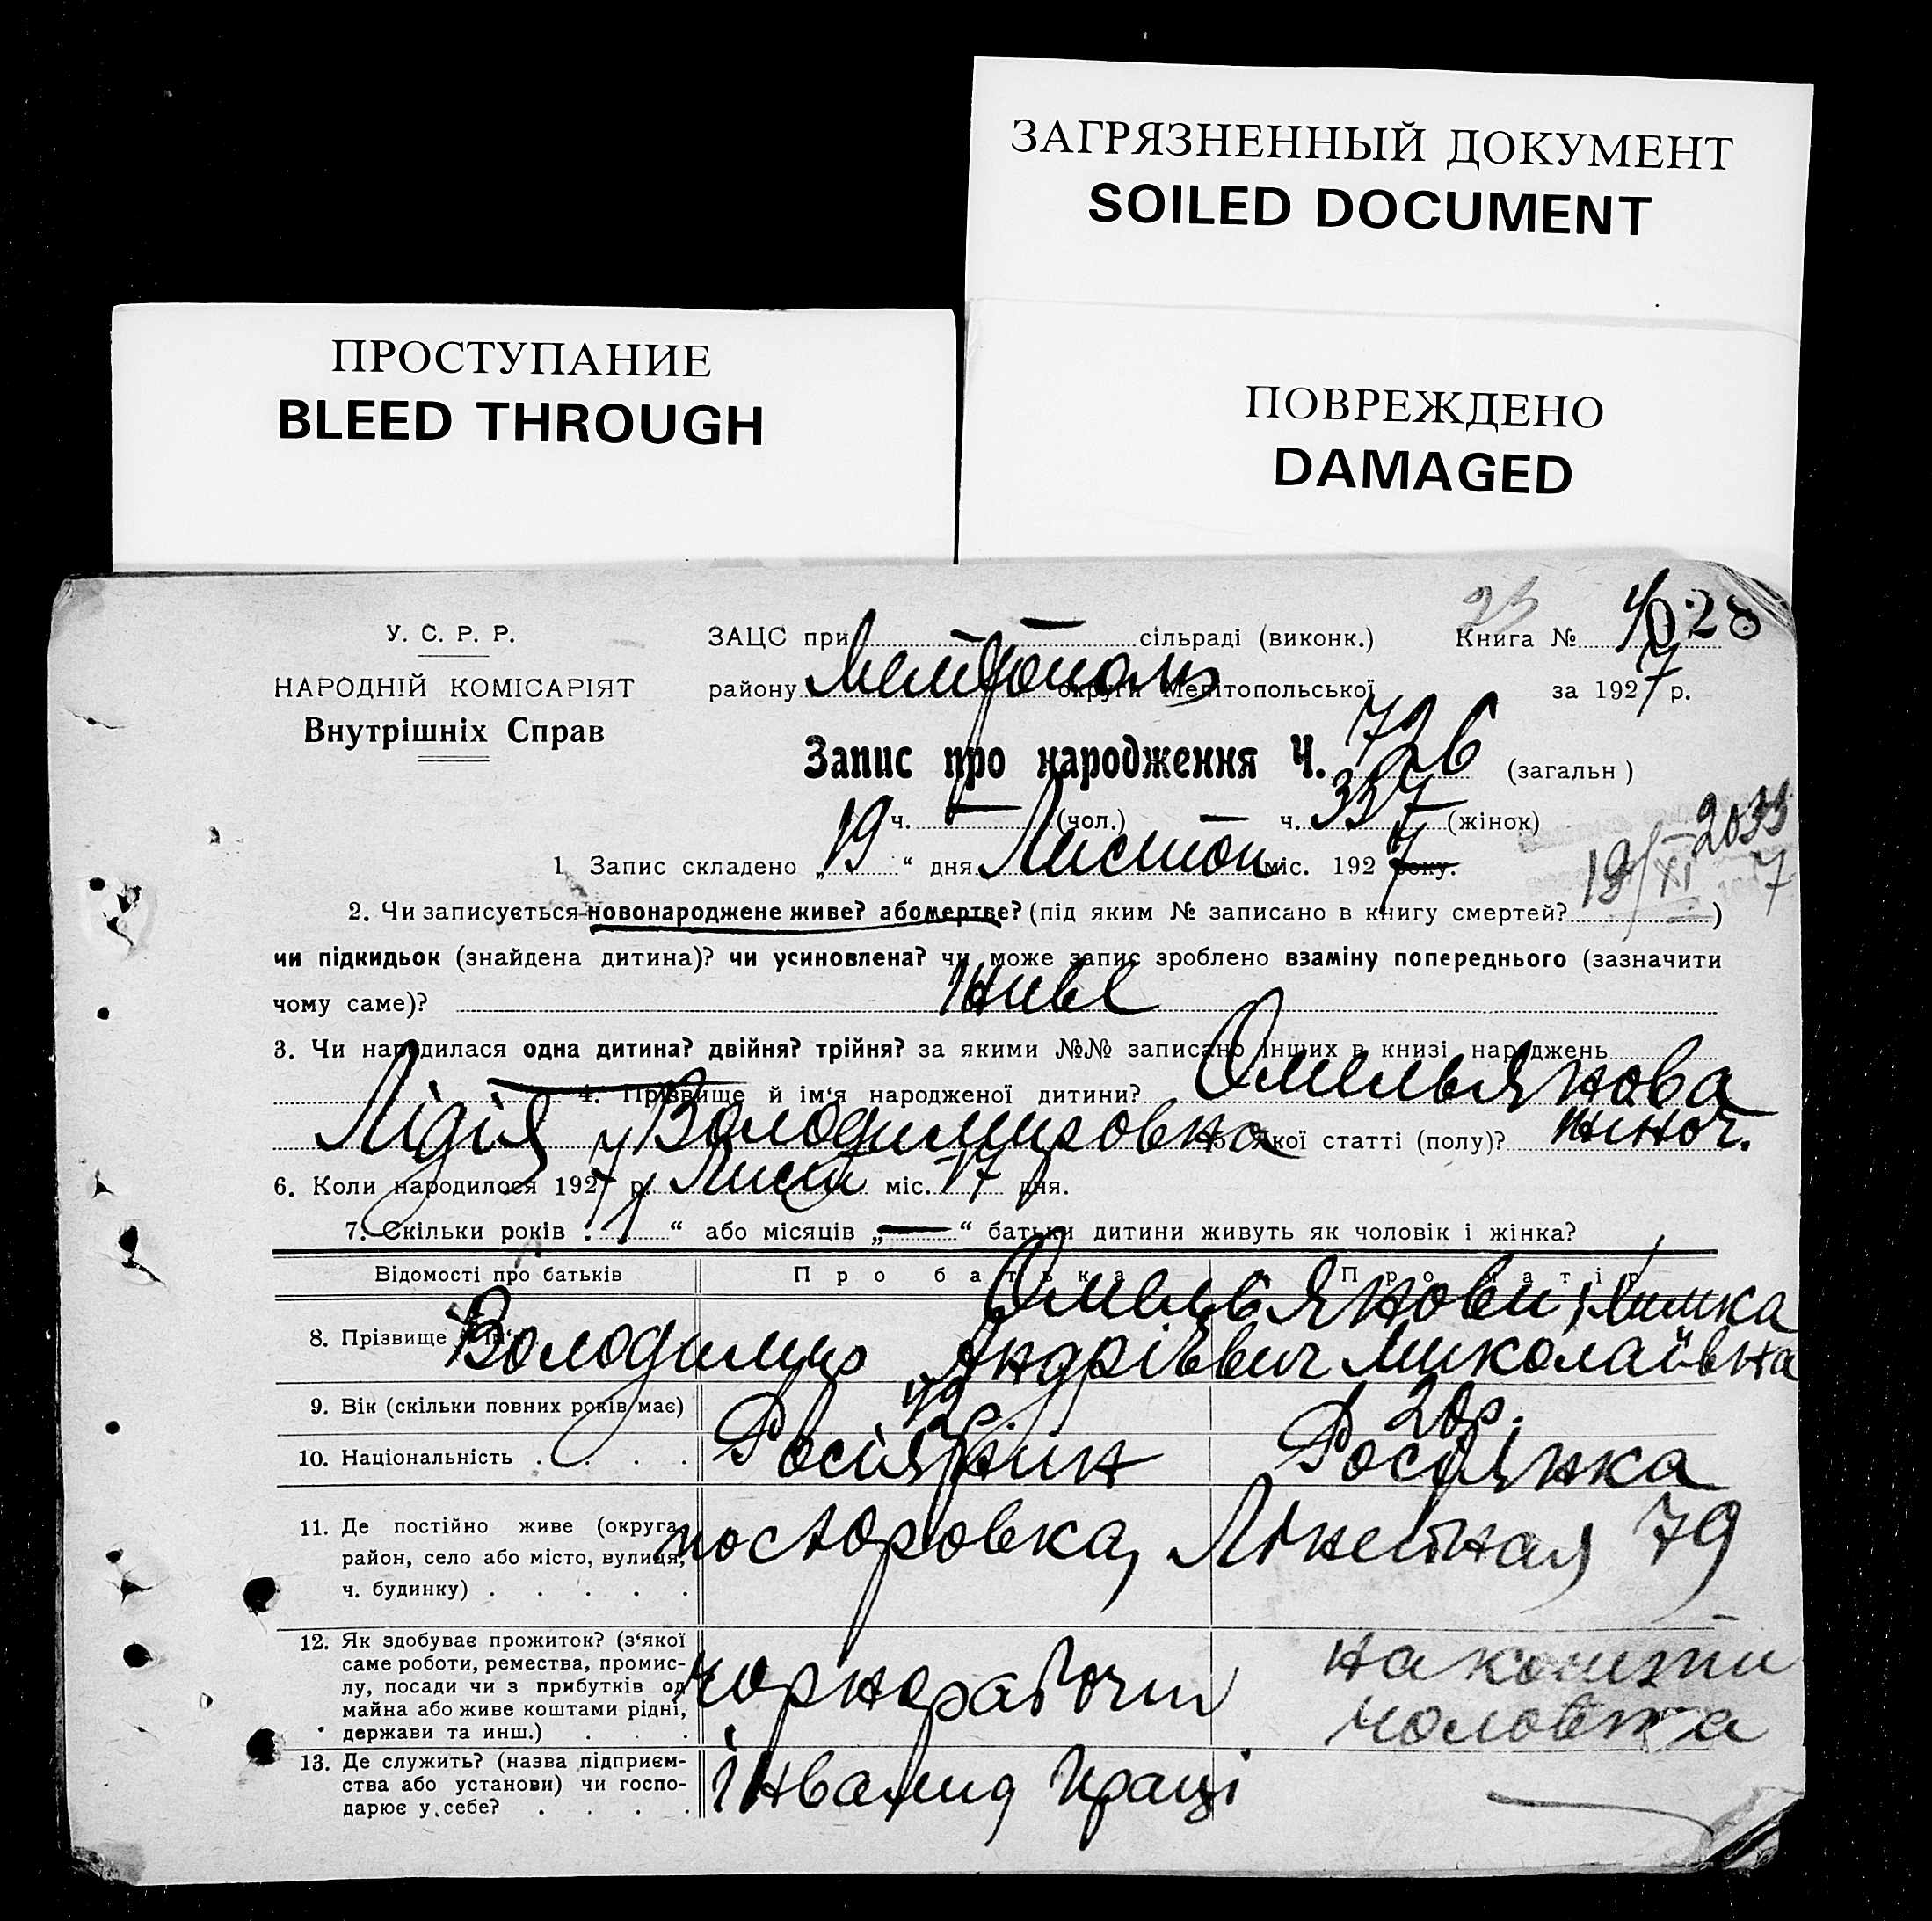 ЗАГРЯЗНЕННЫЙ ДОКУМЕНТ
SOILED DOCUMENT
ПРОСТУПАНИЕ
BLEED THROUGH
ПОВРЕЖДЕНО
DAMAGED
У. С. Р. Р.
НАРОДНІЙ КОМІСАРІЯТ
Внутрішніх Справ
ЗАЦС при сільраді (виконк.) Книга №
28
району округи Мелітопольської за 1927 р.
Запис про народження Ч. 726 (загальн)
ч. — (чол.) — ч. 337 (жінок)
2033
1 Запис складено „19“ дня Листоп міс. 1927 року.
19/XI 7
2. Чи записується новонароджене живе? або мертве? (під яким № записано в книгу смертей? )
чи підкидьок (знайдена дитина)? чи усиновлена? чи може запис зроблено взаміну попереднього (зазначити
чому саме)? Живе
3. Чи народилася одна дитина? двійня? трійня? за якими №№ записано інших в книзі народжень
4. Прізвище й ім‘я народженої дитини? Омельянова
Лідія Володимировна 5. Якої статті (полу)? жіноч.
6. Коли народилося 1927 р. Лист міс. 17 дня.
7. Скільки років 1 “ або місяців „—“ батьки дитини живуть як чоловік і жінка?
Відомості про батьків Про батька Про матір
Омельянови
8. Прізвище й ім‘я Володимир Андріевич Миколаївна
9. Вік (скільки повних років має) 20 р.
10. Національність Росіянин Росіянка
11. Де постійно живе (округа,
район, село або місто, вулиця,
ч. будинку) 79
12. Як здобуває прожиток? (з‘якої
саме роботи, ремества, промис-
лу, посади чи з прибутків од
майна або живе коштами рідні,
держави та инш.) чорнорабочий на кошти
чоловіка
13. Де служить? (назва підприєм-
ства або установи) чи госпо-
дарює у себе? інвалид праці